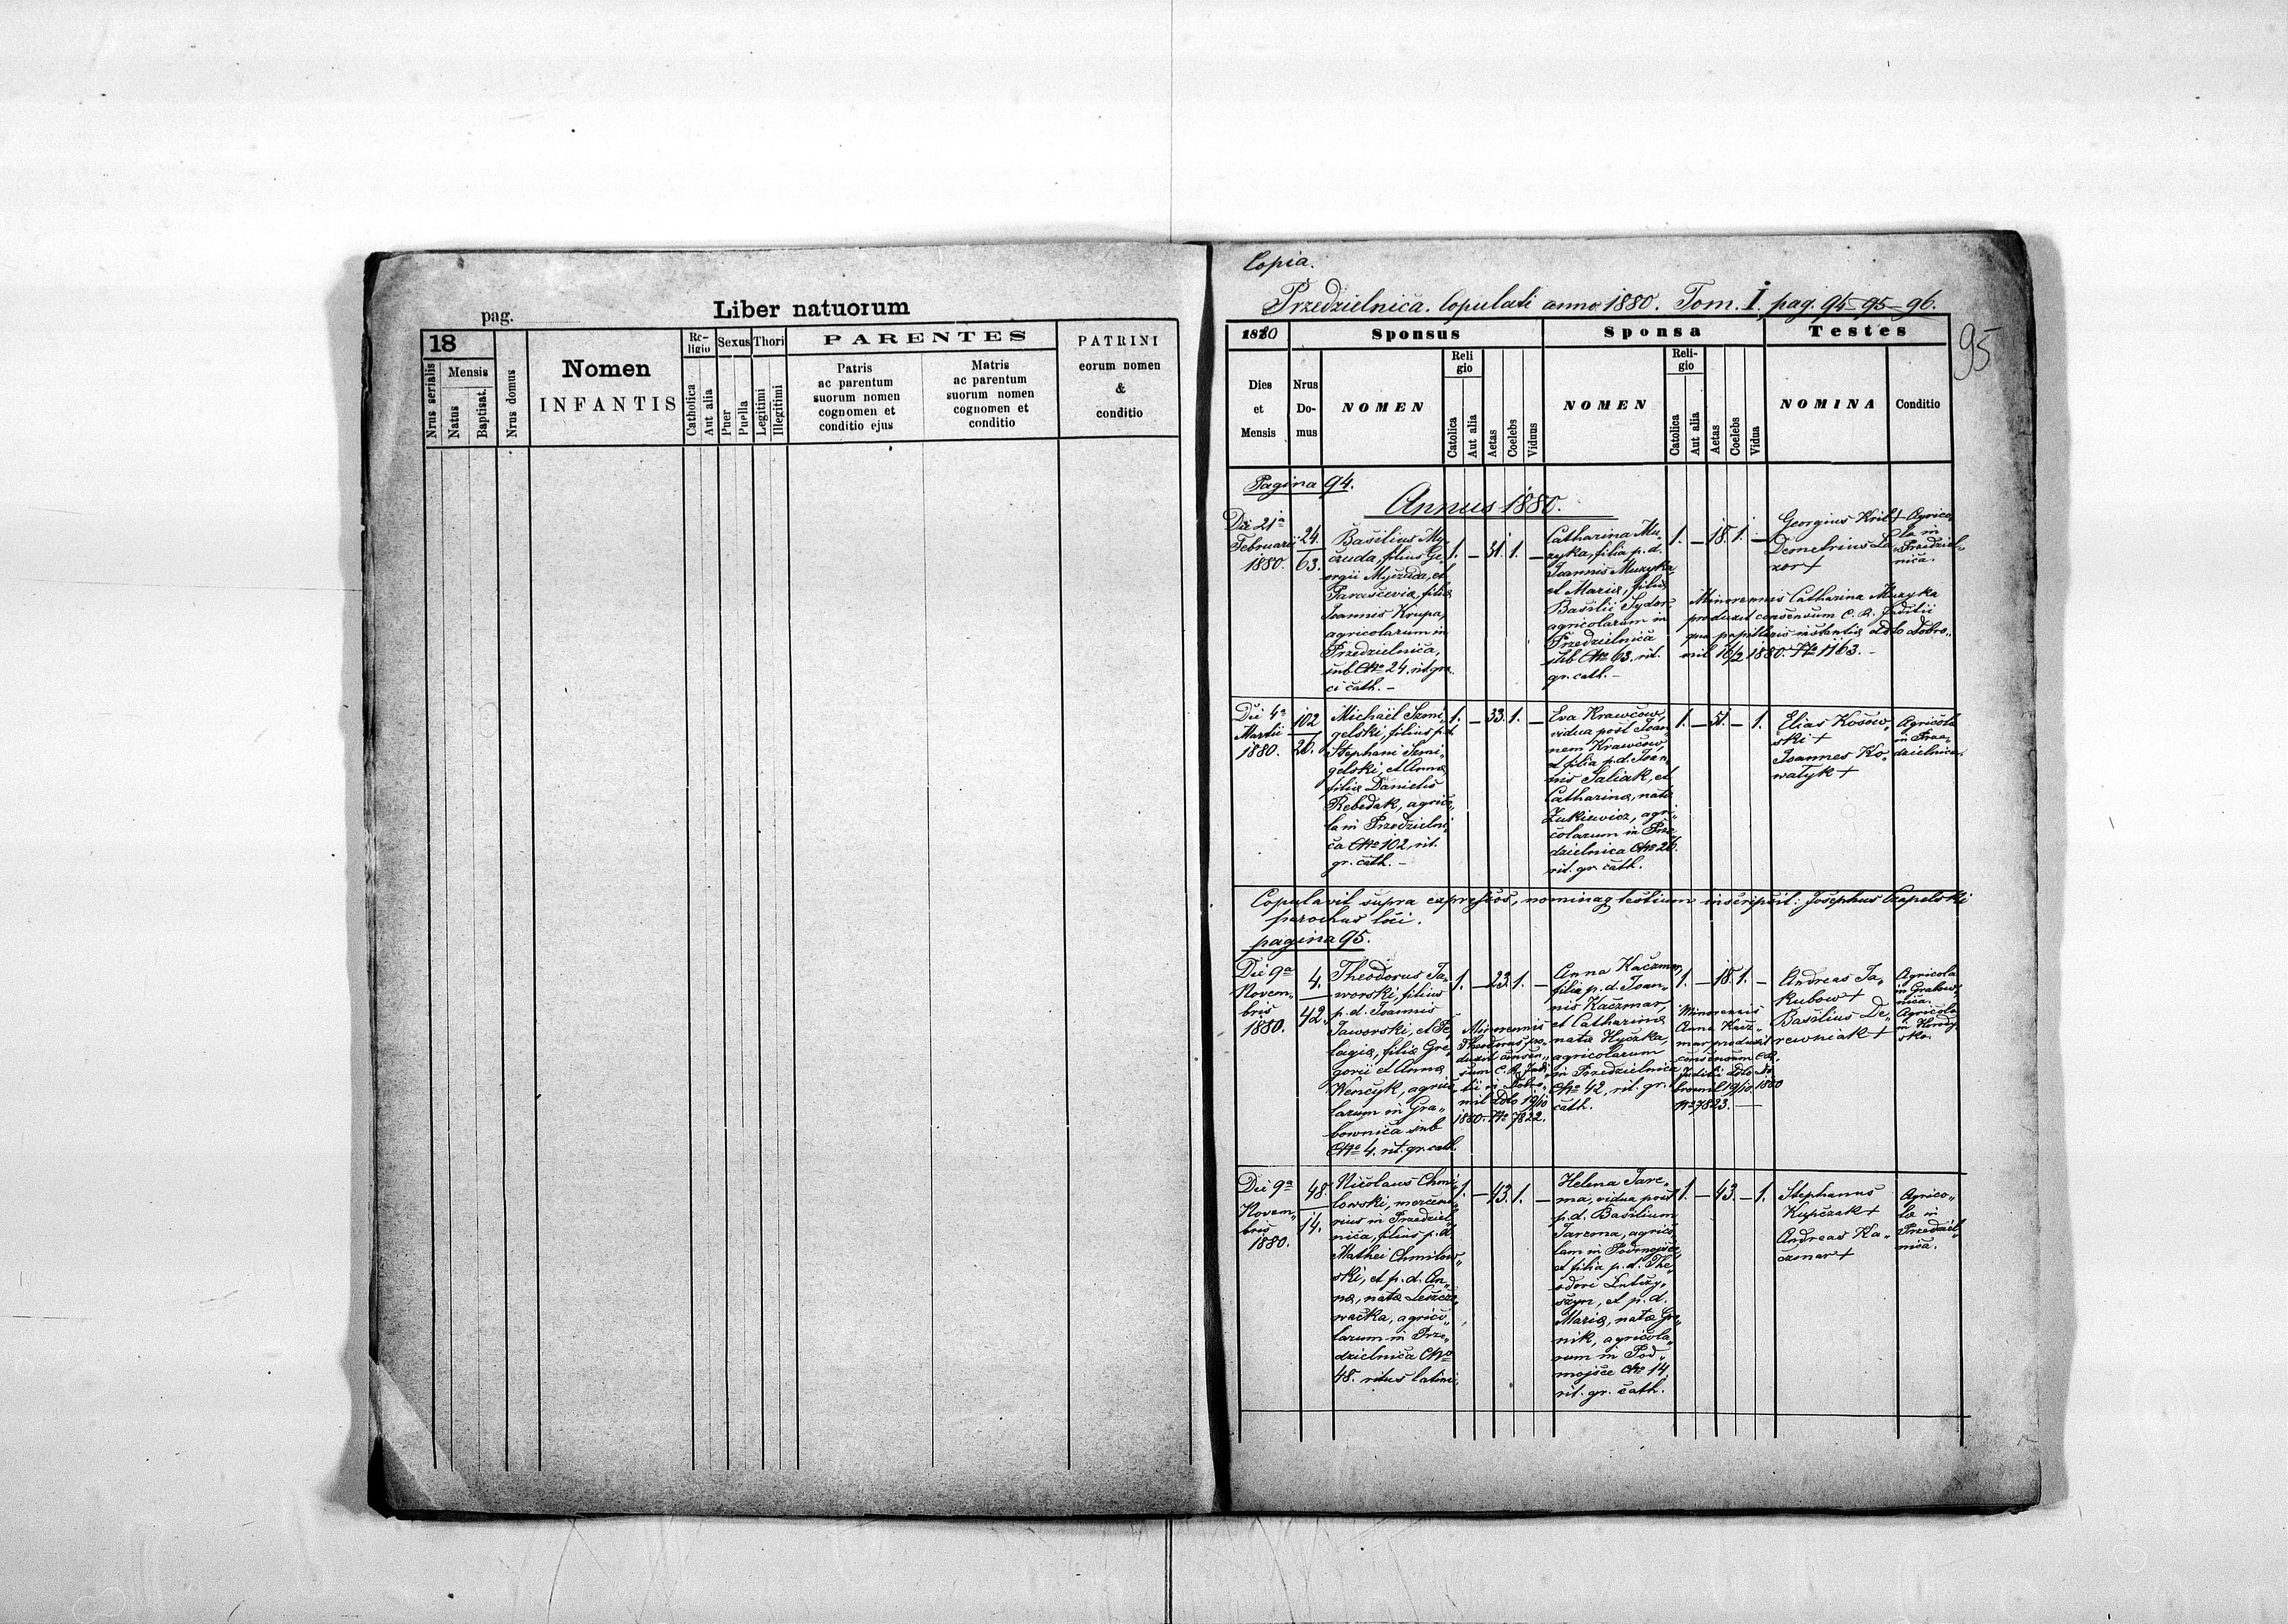 pag.
Liber natuorum
18
Mensis
Nrus serialis
Natus
Baptisat.
Nrus domus
Nomen
INFANTIS
Re-
ligio
Catholica
Aut alia
Sexus
Puer
Puella
Thori
Legitimi
Illegitimi
PARENTES
Patris
ac parentum
suorum nomen
cognomen et
conditio ejus
Matris
ac parentum
suorum nomen
cognomen et
conditio
PATRINI
eorum nomen
&
conditio
Copia.
Przedzielnica. Copulati anno 1880. Tom. I. pag. 94-95-96.
95
1880
Sponsus
Sponsa
Testes
Dies
et
Mensis
Nrus
Do-
mus
NOMEN
Reli
gio
Catolica
Aut alia
Aetas
Coelebs
Viduus
NOMEN
Reli-
gio
Catolica
Aut alia
Aetas
Coelebs
Vidua
NOMINA
Conditio
Pagina 94.
Annus 1880.
Die 21a
Februarii
1880.
24.
63.
Basilius My-
czuda, filius Ge-
orgii Myczuda, et
Parascevia, filia
Joannis Krupa,
agricolarum in
Przedzielnica,
sub CNo 24. rit. gra-
ci cath. -
1. - 31. 1. -
Catharina Mu-
zyka, filia p. d.
Joannis Muzyka,
et Maria, filia
Basilii Sydor,
agricolarum in
Przedzielnica
sub CNo 63. rit.
gr. cath. -
1. - 18. 1. -
Georgius Kril +
Demetrius La-
zor +
Agrico-
la in
Przedziel-
nica.
Minorennis Catharina Muzyka
produxit consensum C. R. Juditii
qua pupillaris instantia ddto Dobro-
mil 16/2 1880. No 1163. -
Die 4a
Martii
1880.
102
26.
Michaël Szmi-
gelski, filius p. d.
Stephani Szmi-
gelski, et Anna
filia Danielis
Rebedak, agrico-
la in Przedzielni-
ca CNo 102, rit.
gr. cath. -
1. - 33. 1. -
Eva Krawców,
vidua post Joan-
nem Krawców,
et filia p. d. Joan-
nis Saliak, et
Catharina, nata
Zukiewicz, agri-
colarum in Prze-
dzielnica CNo 26.
rit. gr. cath.
1. - 51. - 1.
Elias Kosow-
ski +
Joannes Ko-
watyk +
Agricola
in Prze-
dzielnica.
Copulavit supra expressos, nominaq testium inscripsit: Josephus Czapelski
parochus loci.
pagina 95.
Die 9a
Novem-
bris
1880.
4.
42.
Theodorus Ja-
worski, filius
p. d. Joannis
Jaworski, et Pe-
lagia, filia Gre-
gorii et Anna
Wenczyk, agrico-
larum in Gra-
bownica sub
CNo 4. rit. gr. cath.
1. - 23. 1. -
Minorennis
Theodorus pro-
duxit consen-
sum C. R. Judi-
tii in Dobro-
mil ddto 19/10
1880. No 7822.
Anna Kaczmar,
filia p. d. Joan-
nis Kaczmar,
et Catharina
nata Hyczka,
agricolarum
in Przedzielnica
CNo 42, rit. gr.
cath.
1. - 18. 1. -
Minorennis
Anna Kacz-
mar produxit
consensum C. R.
Juditii ddto Do-
bromil 19/10. 1880
No 7823. -
Andreas Ja-
kubow +
Basilius De-
rewniak +
Agricola
in Grabow-
nica.
Agricola
in
Die 9a
Novem-
bris
1880.
48.
14.
Nicolaus Chmi-
lowski, mercena-
rius in Przedziel-
nica, filius p. d.
Mathei Chmilow-
ski, et p. d. An-
na, nata
agrico-
larum in Prze-
dzielnica CNo
48. ritus latini.
1. - 43. 1. -
Helena Jare-
ma, vidua post
p. d. Basilium
Jarema, agrico-
lam in Podmojsce,
et filia p. d. The-
odori
et p. d.
Maria, nata Gre-
nik, agricola-
rum in Pod-
mojsce CNo 14
rit. gr. cath.
1. - 43. - 1.
Stephanus
Kupczak +
Andreas Ka-
czmar +
Agrico-
la in
Przedziel-
nica.